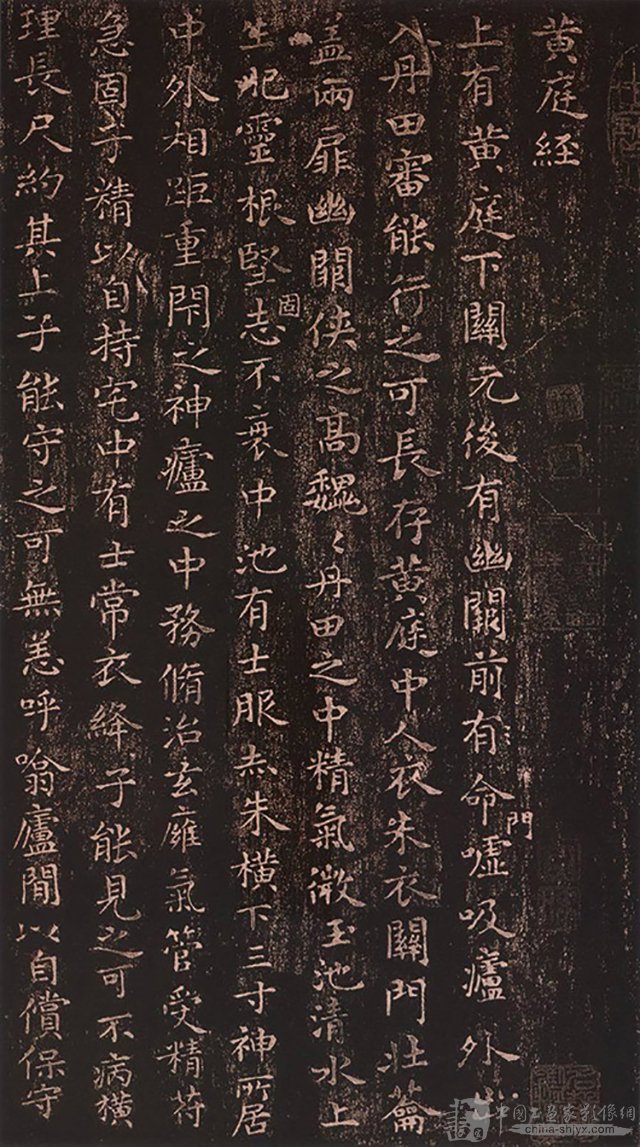 黄庭經
上有黄庭下關元後有幽闕前有命門噓吸廬外出
入丹田審能行之可長存黄庭中人衣朱衣關門壯籥
盖兩扉幽闕俠之高魏〻丹田之中精氣微玉池清水上
生肥靈根堅固志不衰中池有士服赤朱横下三寸神所居
中外相距重閇之神廬之中務脩治玄廱氣管受精苻
急固子精以自持宅中有士常衣絳子能見之可不病横
理長尺約其上子能守之可無恙呼噏廬間以自償保守
書
中國工藝家影像網
china-shjyx.com